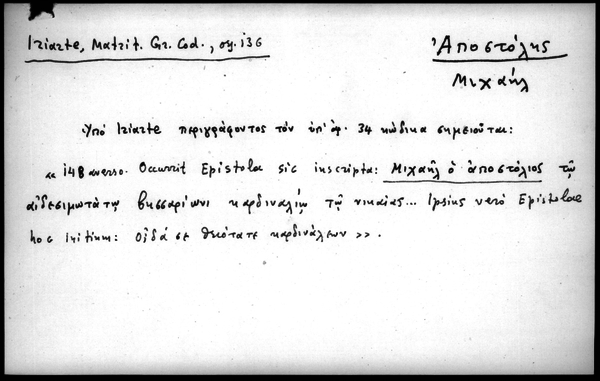 Iriarte, Matrit. Gr. Cod., σγ. 136
Ἀποστόλης
Μιχαήλ
Ὑπό Iriarte περιγράφοντος τόν ὑπ' ἀρ. 34 κώδικα σημειοῦται:
« 148 averso. Occurrit Epistola sic inscripta: Μιχαῆλ ὁ ἀποστόλιος τῷ
αἰδεσιμωτάτῳ βησσαρίωνι καρδιναλίῳ τῷ νικαίας... Ipsius vero Epistolae
hoc initium: Οἶδά σε θειότατε καρδινάλεων ».